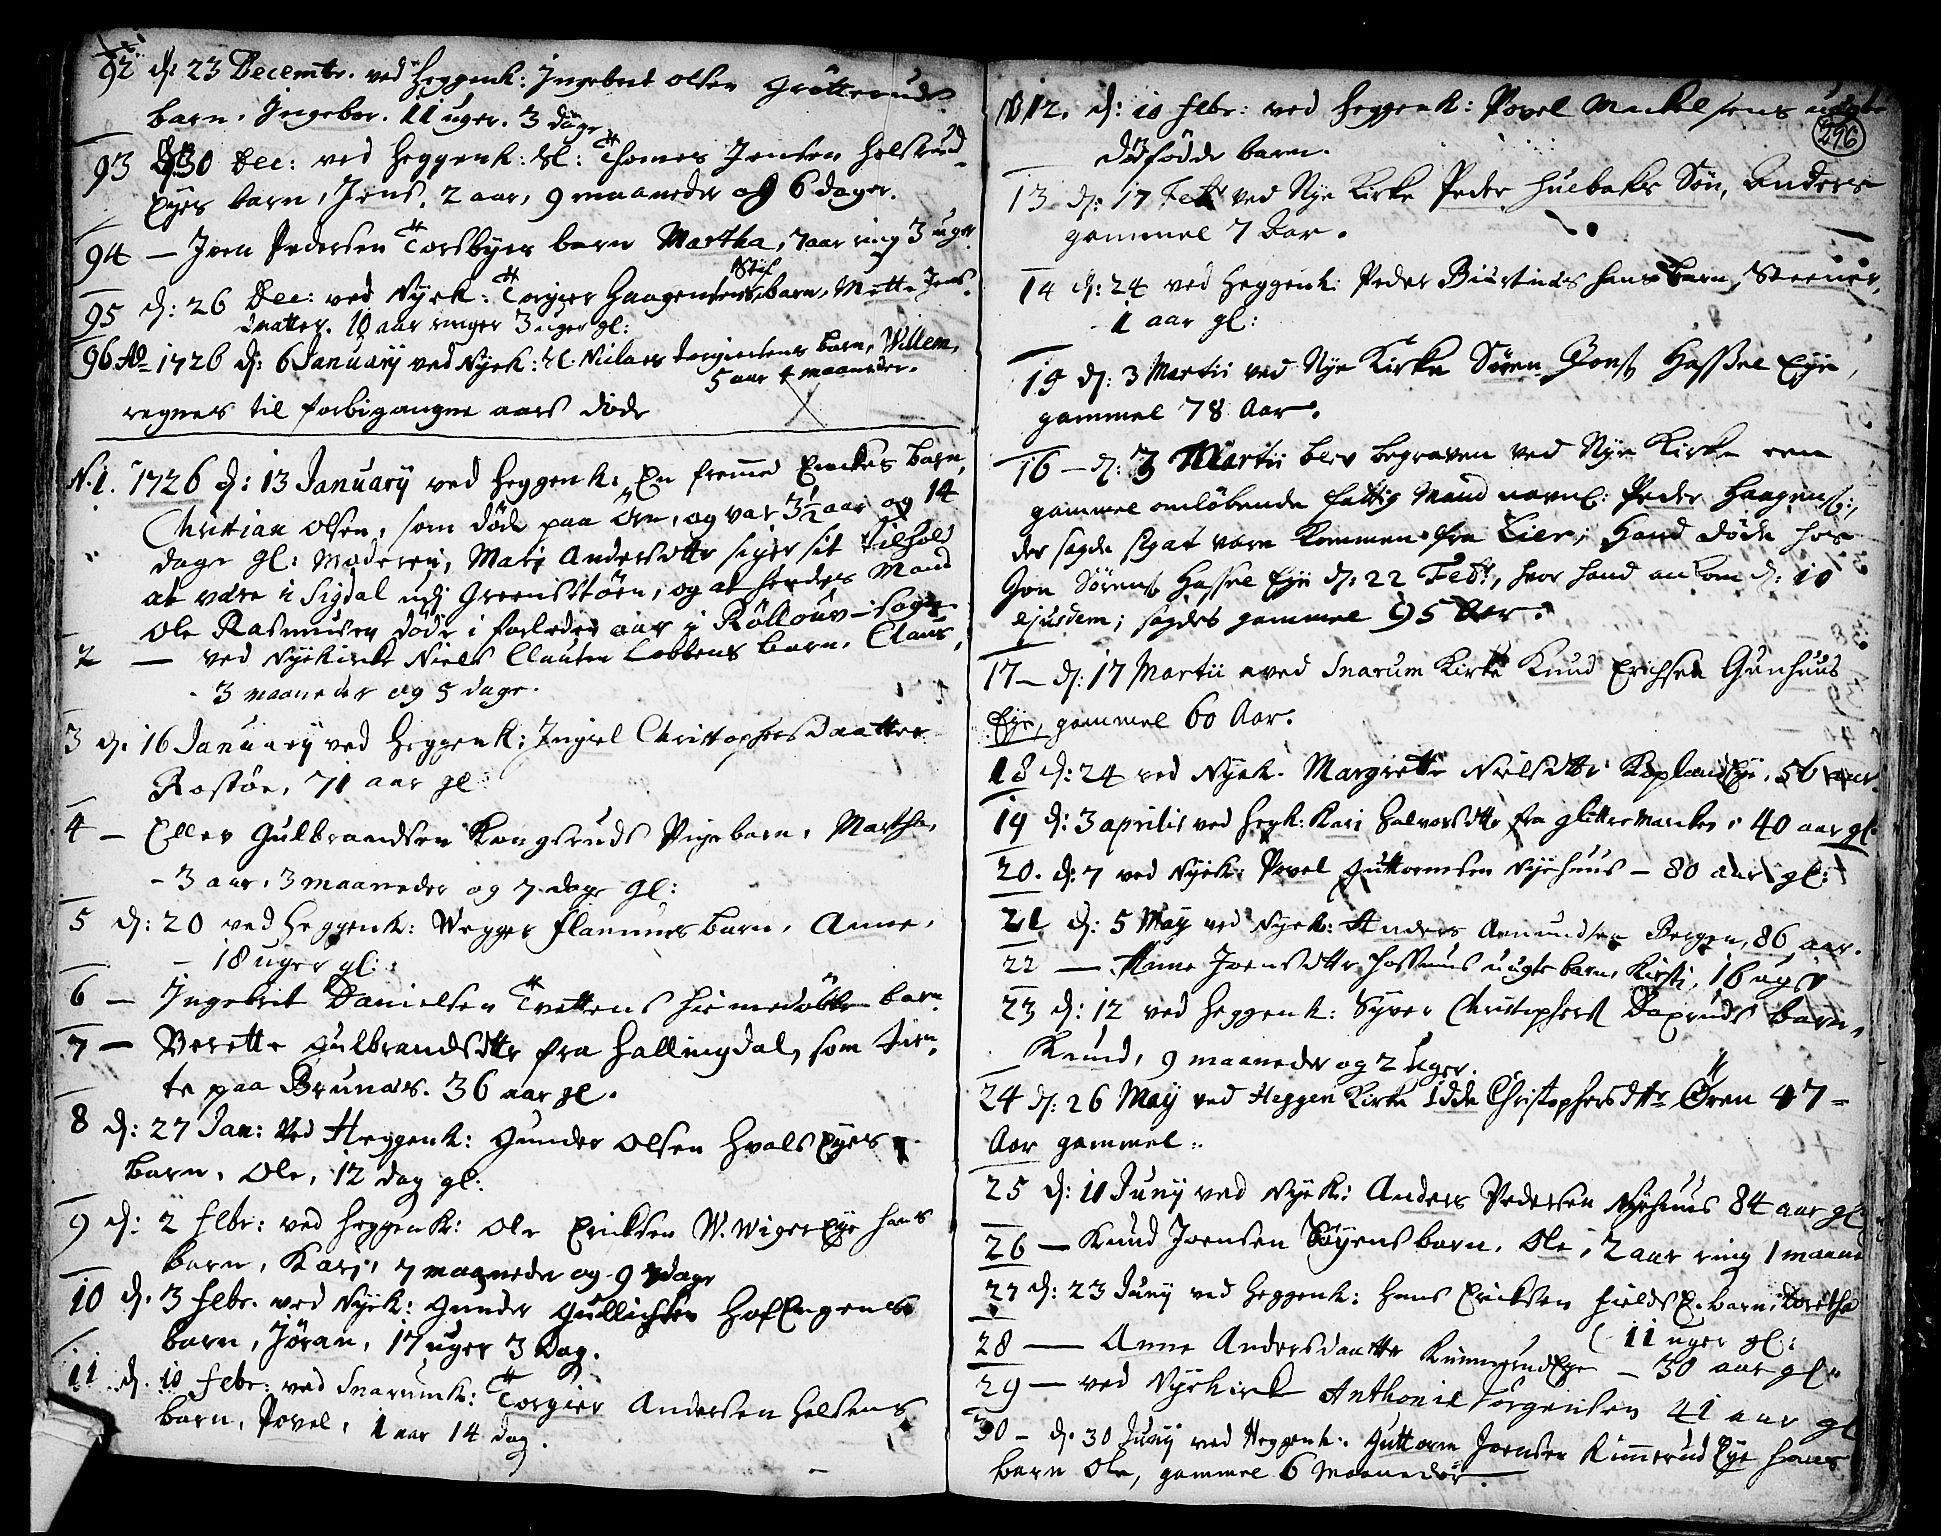 92 d: 23 Decembr. ved Heggenk: Ingebret Olsen Grötterud
barn, Ingebor. 11 uger. 3 dage
93 d: 30 Dec: ved Heggenk: Thomes Jensen Holsrud
Eyes barn, Jens, 2 aar, 9 maaneder og 6 dager.
94 — Joen Pedersen Torsbyes barn Martha, 7 aar ring 3 uger
Stif
95 d: 26 Dec: ved Nyek: Torgier Haagensens barn, Mette Jens-
daatter. 10 aar ringer 3 uger gl:
96 Ao 1726 d: 6 January ved Nyek: Niclaes Torgiersens barn, Willem,
5 aar 4 maaneder.
regnes til forbigangne aars døde
N. 1. 1726 d: 13 January ved Heggenk: En fremmed Enckes barn,
Christian Olsen, som døde paa Ørn, og var 3½ aar og 14
dage gl: Moderen, Mari Andersdttr siger sit tilhold
at være i Sigdal udj Greensstöen, og at hendes Mand
Ole Rasmusen døde i forleden aar i Röllouv-sogn
2 — ved Nyekirke Niels Clausen Lobbens barn, Claus,
3 maaneder og 5 dage.
3 d: 16 January ved Heggenk: Ingiel Christophersdaatter
Rostøe, 71 aar gl:
4 — Ellev Gulbrandsen Kongsruds Pigebarn, Martha,
- 3 aar, 3 maaneder og 7 dage gl:
5 d: 20 ved Heggenk: Wegger Flannes barn, Anne,
- 18 uger gl:
6 — Ingebrit Danielsen Tvettens hiemedöbte barn
7 — Berette Gulbrandsdttr fra Hallingdal, som tien-
te paa Brunæs. 36 aar gl.
8 d: 27 Jan: ved Heggenk: Gunder Olsen Hvals Eyes
barn, Ole, 12 dag gl:
9 d: 2 Febr: ved Heggenk: Ole Ericksen W. Wiger Eye hans
barn, Kari, 7 maaneder og 9 dage
10 d. 3 Febr. ved Nyek: Gunder Gullichsen HofEngens
barn, Jöran, 17 uger 3 Dag.
11 d. 10 Febr: ved Snarumk: Torgier Andersen Holsens
barn, Povel, 1 aar 14 dag.
296
N 12. d: 10 Febr: ved Heggenk: Povel Mickelsens uægte
dødfødde barn.
13 d: 17 Febr ved Nye Kirke Peder Huebaks Søn, Anders
gammel 7 Aar.
14 d: 24 ved Heggenk: Peder Biertnes hans Barn, Steener,
- 1 aar gl:
15 d: 3 Martii ved Nye Kirke Søren Jons Hassel Eye,
gammel 78 Aar.
16 — d: 3 Martii blev begraven ved Nye Kirke een
gammel omløbende fattig Mand navnl: Peder Haagens:,
der sagde sig at være kommen fra Lier; Hand døde hos
Jon Sørens Hassel Eye d: 22 Febr, hvor hand ankom d: 10
ejusdem; sagdes gammel 95 Aar.
17 — d: 17 Martii ved Snarum Kirke Knud Erichsen Gunhuus
Eye, gammel 60 Aar.
18 d: 24 ved Nyek. Margrette Nielsdttr Kopland Eye, 56 aar.
19 d: 3 aprilis ved Hegk: Kari Halvorsdttr fra Glittre Marcken, 40 aar gl.
20. d: 7 ved Nyek: Povel Guttormsen Nyehuus — 80 aar gl:
21 d: 5 May ved Nyek: Anders Amundsen Bergen, 86 aar.
22 — Anne Joensdttr Fossnes uægte barn, Kirsti, 16 uger
23 d: 12 ved Heggenk: Syver Christophers Daxruds barn,
Knud, 9 maaneder og 2 uger.
24 d: 26 May ved Heggen Kirke Idde Christophersdttr Øren 47 =
Aar gammel.
25 d: 10 Juny ved Nyek: Anders Pedersen Nyehuus 84 aar gl
26 — Knud Joensen Böyens barn, Ole, 2 aar ring 1 maane
27 d: 23 Juny ved Heggenk: Hans Ericksen Fields E. barn, Dorethe
( 11 uger gl:
28 — Anne Andersdaattr Kimmerud Eye — 30 aar gl.
29 — ved Nyekirk Anthonie Torgersen 41 aar gl
30 — d. 30 Juny ved Heggenk. Guttorm Joensen Kimerud Eye hans
barn Ole, gammel 6 Maaneder